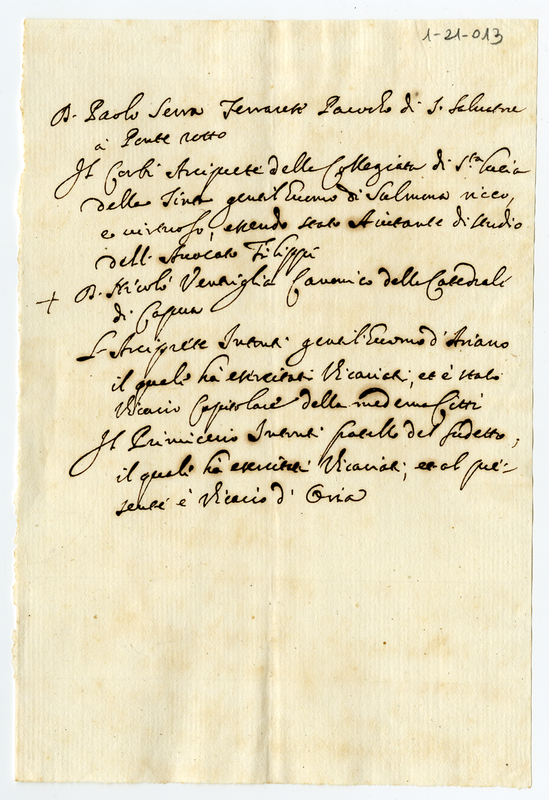 1-21-013
D. Paolo Serra Ferrarese Parocho di S. Salvatore
à Ponte rotto
Il Corbi Arciprete della Collegiata di S.ta Lucia
della gentil'Euomo di Sulmona ricco,
e virtuoso, essendo stato Aiutante di studio
dell'Avocato Filippi
+ D. Nicolò Ventriglia Canonico della Catedrale
di Capua
L'Arciprete Intonti gentil'Euomo d'Ariano
il quale hà esercitati Vicariati, et è stato
Vicario Capitolare della medema Città
Il Primicerio Intonti fratello del sudetto,
il quale hà esercitati Vicariati, et al pre-
sente è Vicario d'Oria